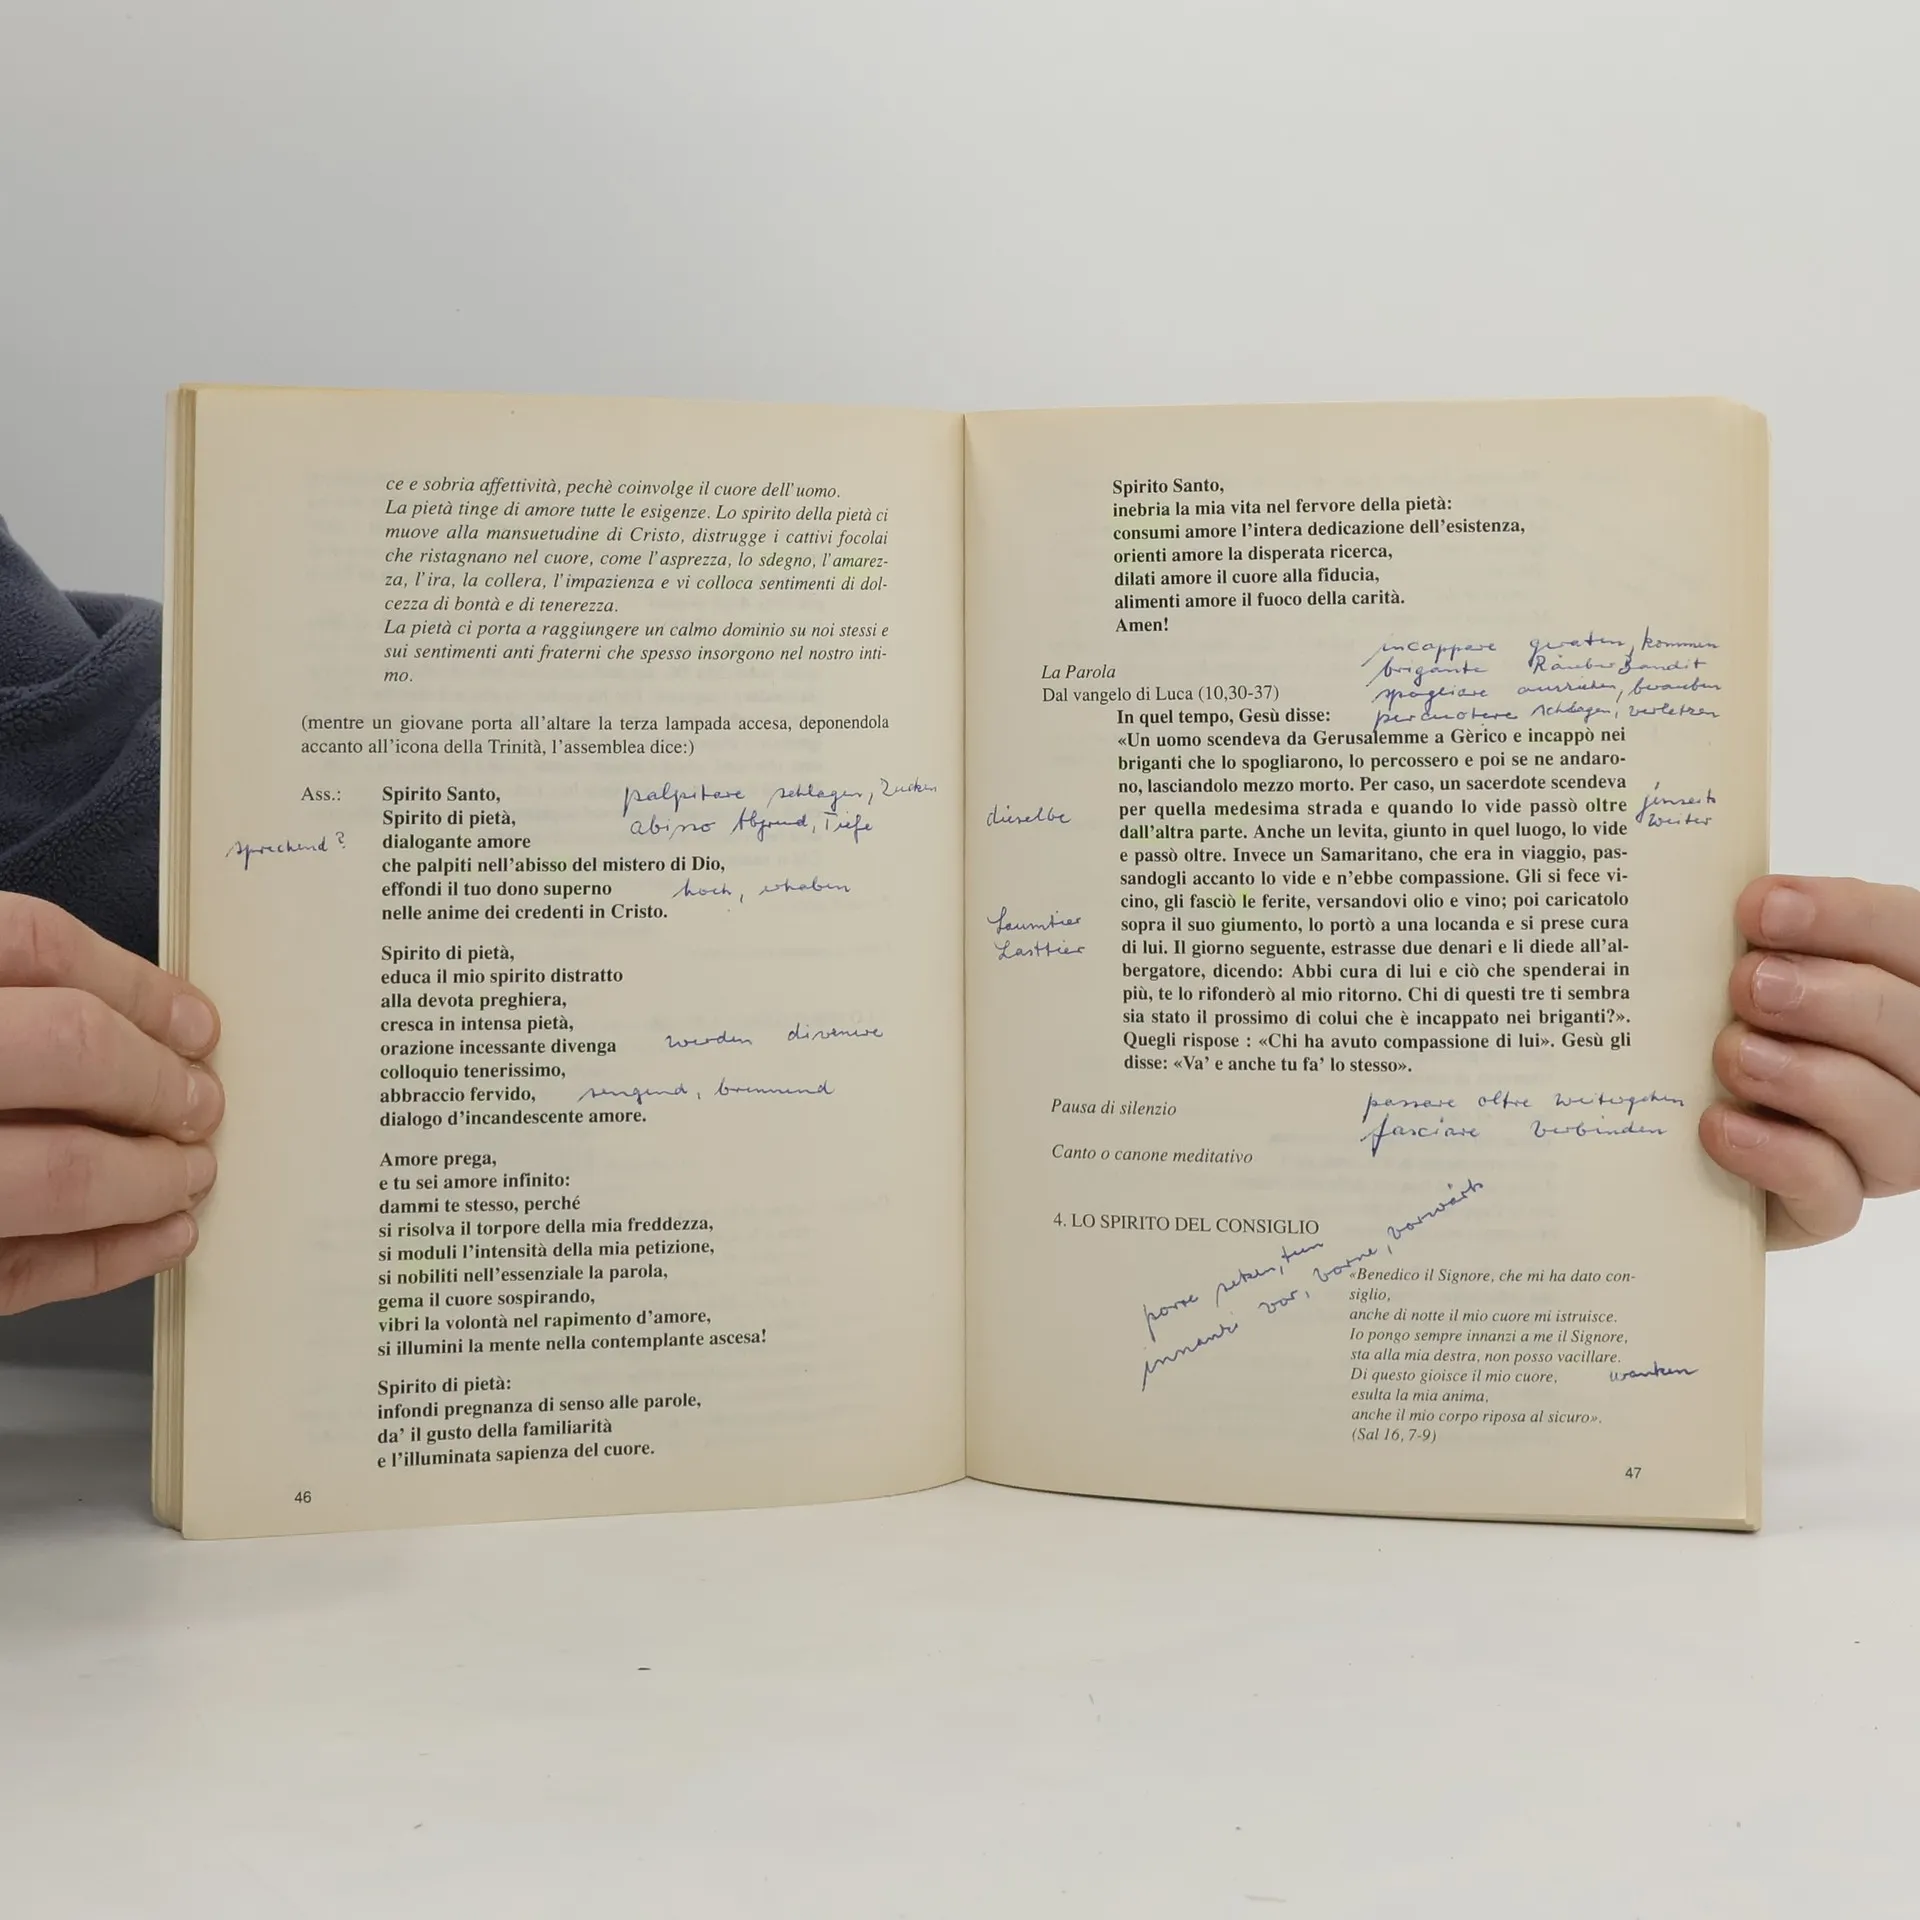 ce e sobria affettività, pechè coinvolge il cuore dell'uomo.
La pietà tinge di amore tutte le esigenze. Lo spirito della pietà ci
muove alla mansuetudine di Cristo, distrugge i cattivi focolai
che ristagnano nel cuore, come l'asprezza, lo sdegno, l'amarez-
za, l'ira, la collera, l'impazienza e vi colloca sentimenti di dol-
cezza di bontà e di tenerezza.
La pietà ci porta a raggiungere un calmo dominio su noi stessi e
sui sentimenti anti fraterni che spesso insorgono nel nostro inti-
mo.
(mentre un giovane porta all'altare la terza lampada accesa, deponendola
accanto all'icona della Trinità, l'assemblea dice:)
Ass.: Spirito Santo,
palpitare schlagen, zucken
Spirito di pietà,
abisso Abgrund, Tiefe
dialogante amore
sprechend?
che palpiti nell'abisso del mistero di Dio,
effondi il tuo dono superno
hoch, erhaben
nelle anime dei credenti in Cristo.
Spirito di pietà,
educa il mio spirito distratto
alla devota preghiera,
cresca in intensa pietà,
orazione incessante divenga
werden divenire
colloquio tenerissimo,
abbraccio fervido,
sengend, brennend
dialogo d'incandescente amore.
Amore prega,
e tu sei amore infinito:
dammi te stesso, perché
si risolva il torpore della mia freddezza,
si moduli l'intensità della mia petizione,
si nobiliti nell'essenziale la parola,
gema il cuore sospirando,
vibri la volontà nel rapimento d'amore,
si illumini la mente nella contemplante ascesa!
Spirito di pietà:
infondi pregnanza di senso alle parole,
da' il gusto della familiarità
e l'illuminata sapienza del cuore.
46
Spirito Santo,
inebria la mia vita nel fervore della pietà:
consumi amore l'intera dedicazione dell'esistenza,
orienti amore la disperata ricerca,
dilati amore il cuore alla fiducia,
alimenti amore il fuoco della carità.
Amen!
incappare geraten, kommen
brigante Räuber Bandit
spogliare ausziehen, berauben
percuotere schlagen, verletzen
La Parola
Dal vangelo di Luca (10,30-37)
In quel tempo, Gesù disse:
«Un uomo scendeva da Gerusalemme a Gèrico e incappò nei
briganti che lo spogliarono, lo percossero e poi se ne andaro-
no, lasciandolo mezzo morto. Per caso, un sacerdote scendeva
per quella medesima strada e quando lo vide passò oltre
dieselbe
jenseits
weiter
dall'altra parte. Anche un levita, giunto in quel luogo, lo vide
e passò oltre. Invece un Samaritano, che era in viaggio, pas-
sandogli accanto lo vide e n'ebbe compassione. Gli si fece vi-
cino, gli fasciò le ferite, versandovi olio e vino; poi caricatolo
sopra il suo giumento, lo portò a una locanda e si prese cura
Saumtier
Lasttier
di lui. Il giorno seguente, estrasse due denari e li diede all'al-
bergatore, dicendo: Abbi cura di lui e ciò che spenderai in
più, te lo rifonderò al mio ritorno. Chi di questi tre ti sembra
sia stato il prossimo di colui che è incappato nei briganti?».
Quegli rispose : «Chi ha avuto compassione di lui». Gesù gli
disse: «Va' e anche tu fa' lo stesso».
passare oltre weitergehen
fasciare verbinden
Pausa di silenzio
Canto o canone meditativo
4. LO SPIRITO DEL CONSIGLIO
porre setzen, tun
innanzi vor, vorne, vorwärts
«Benedico il Signore, che mi ha dato con-
siglio,
anche di notte il mio cuore mi istruisce.
Io pongo sempre innanzi a me il Signore,
sta alla mia destra, non posso vacillare.
Di questo gioisce il mio cuore,
wanken
esulta la mia anima,
anche il mio corpo riposa al sicuro».
(Sal 16, 7-9)
47